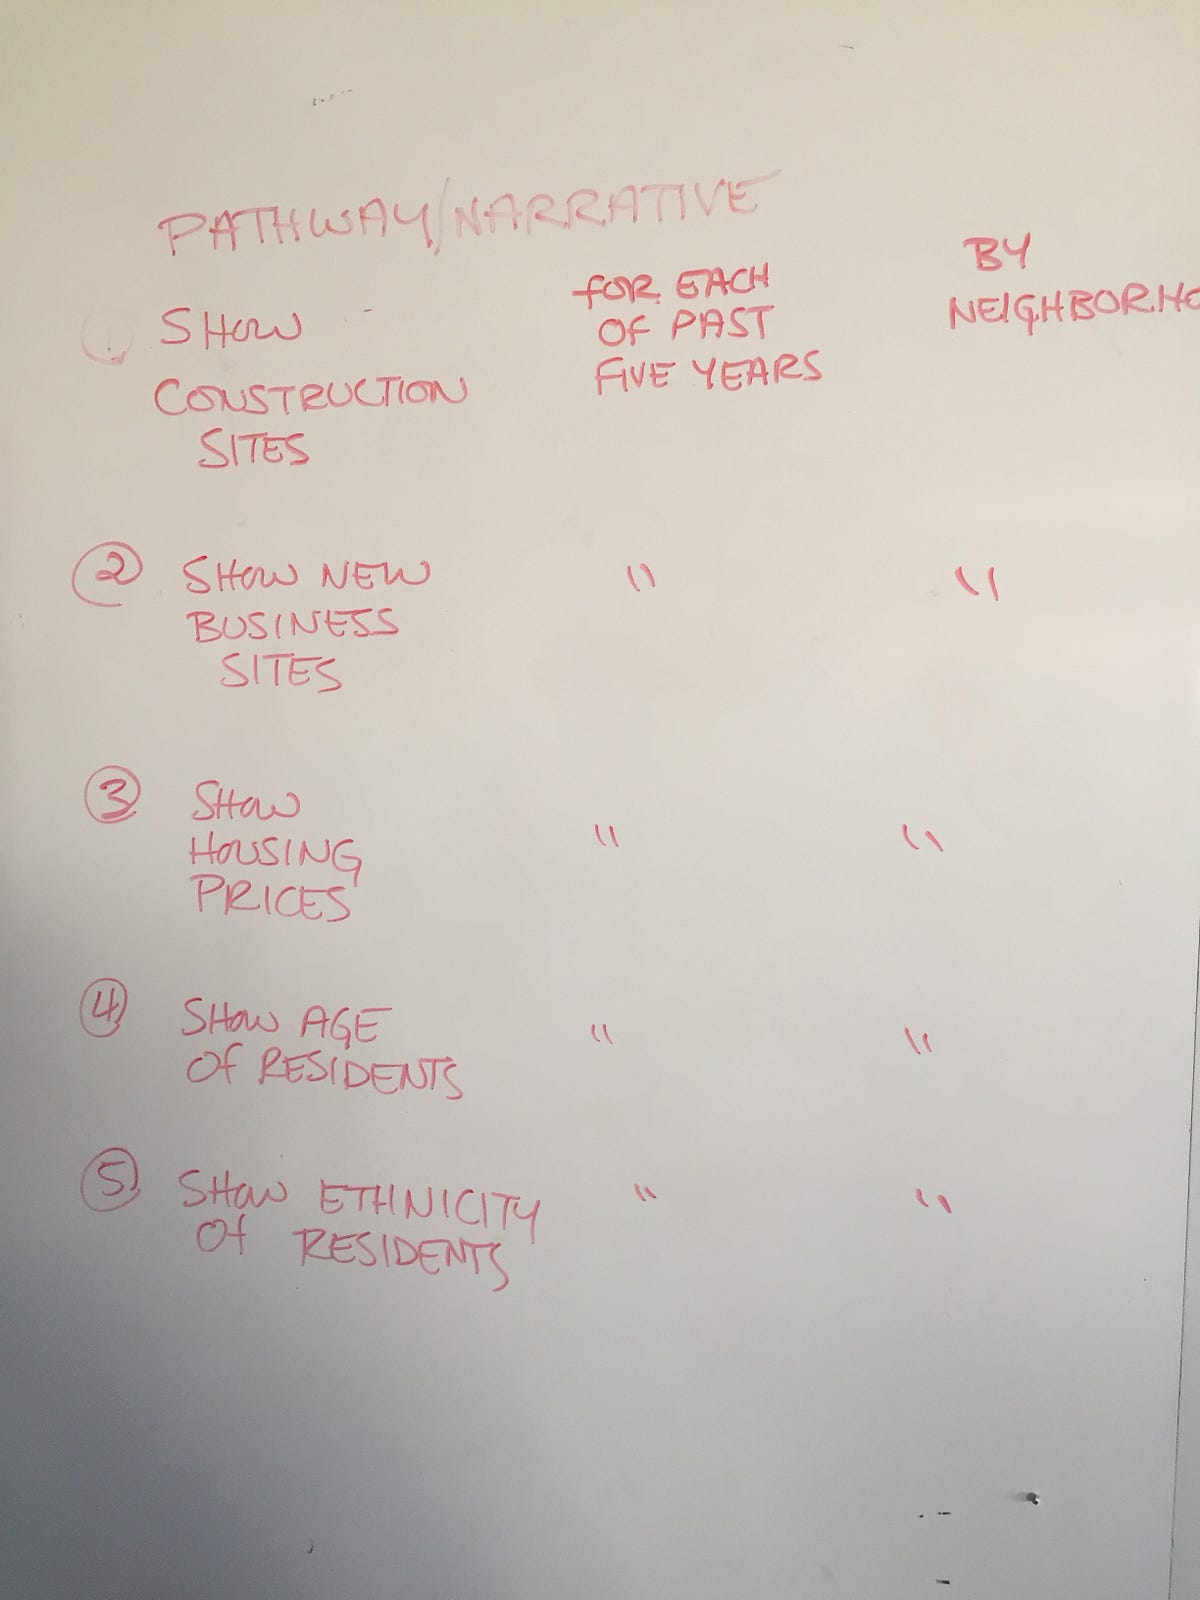 PATHWAY/NARRATIVE
① SHOW
CONSTRUCTION
SITES
FOR EACH
OF PAST
FIVE YEARS
BY
NEIGHBORHO
② SHOW NEW " "
BUSINESS
SITES
③ SHOW
HOUSING " "
PRICES
④ SHOW AGE " "
OF RESIDENTS
⑤ SHOW ETHNICITY " "
OF RESIDENTS